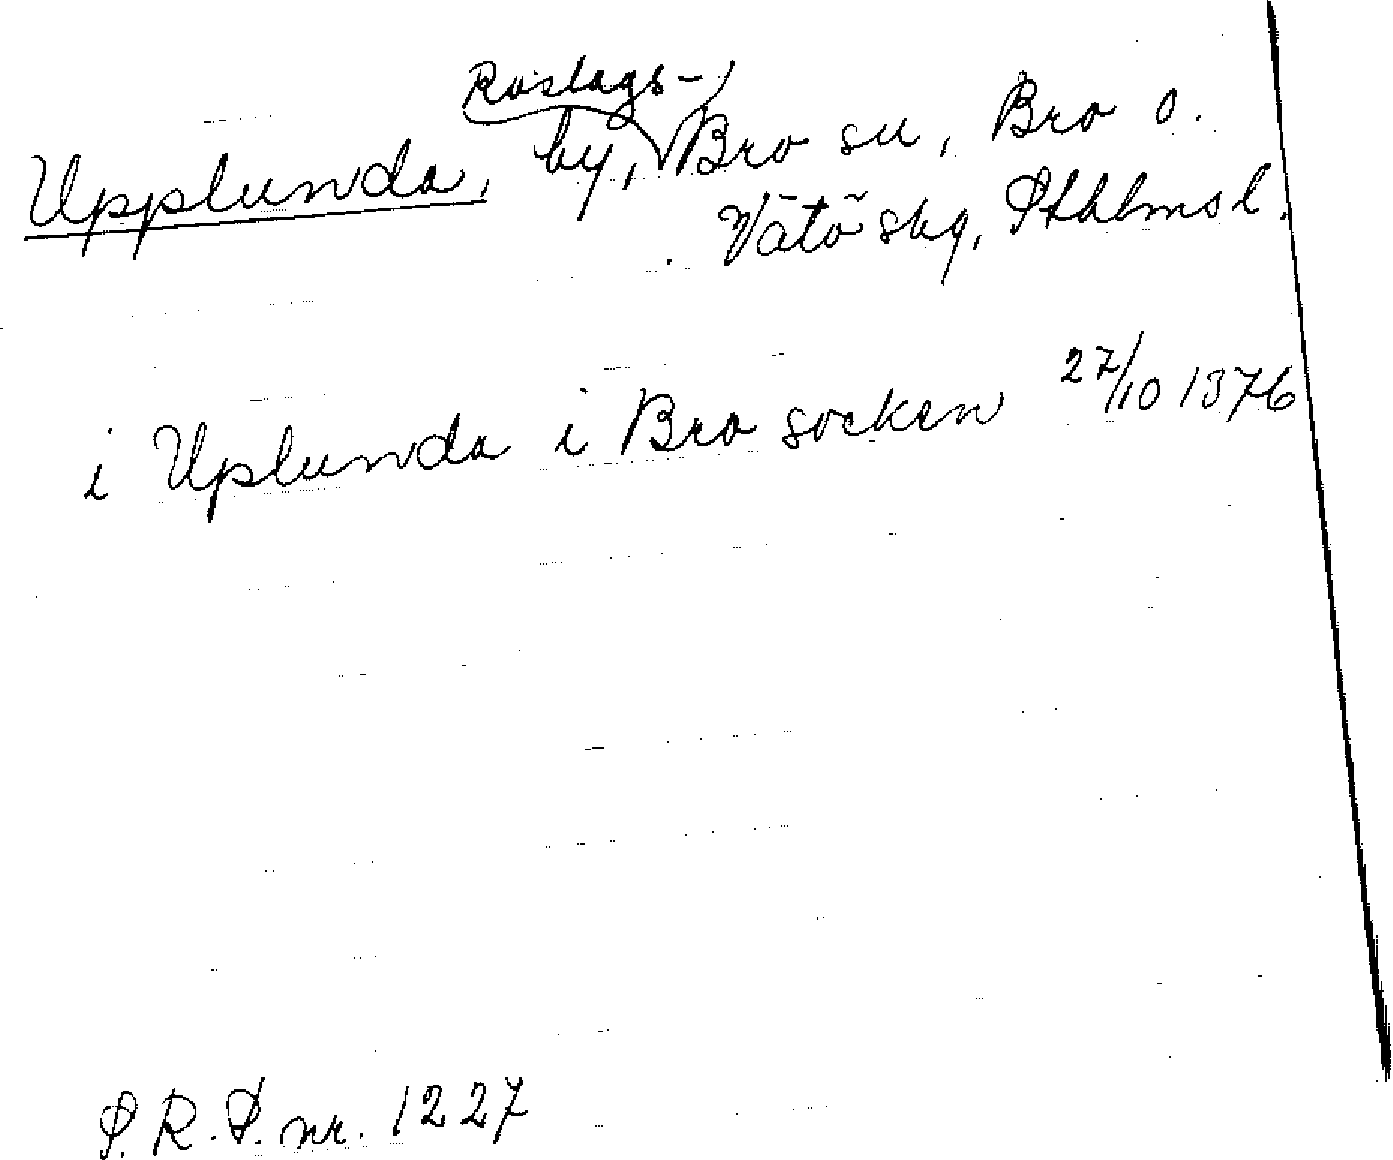 Roslags-
Upplunda, by, Bro sn, Bro o.
Vätö skg, Sthlms l.
i Uplunda i Bro socken 27/10 1376
S.R.P. nr. 1227